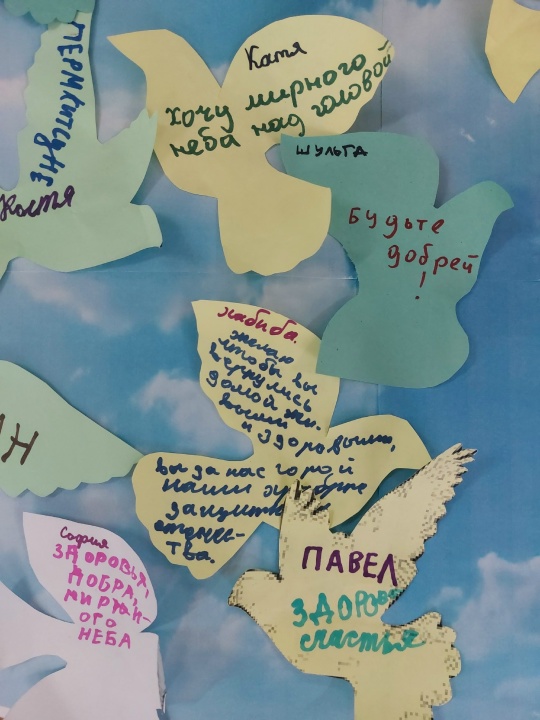 Костя
Катя
хочу мирного
неба над головой
ШУЛЬГА
Будьте
добрей
!
хабиба.
желаю
чтобы вы
вернулись
домой жи-
выми
и здоровыми,
вы за нас горой
наши храбрые
защитники
отечес-
тва.
АН
София
ЗДОРОВЬЯ,
ДОБРА,
МИРНИ-
ОГО
НЕБА
ПАВЕЛ
ЗДОРОВЬЯ
счастья